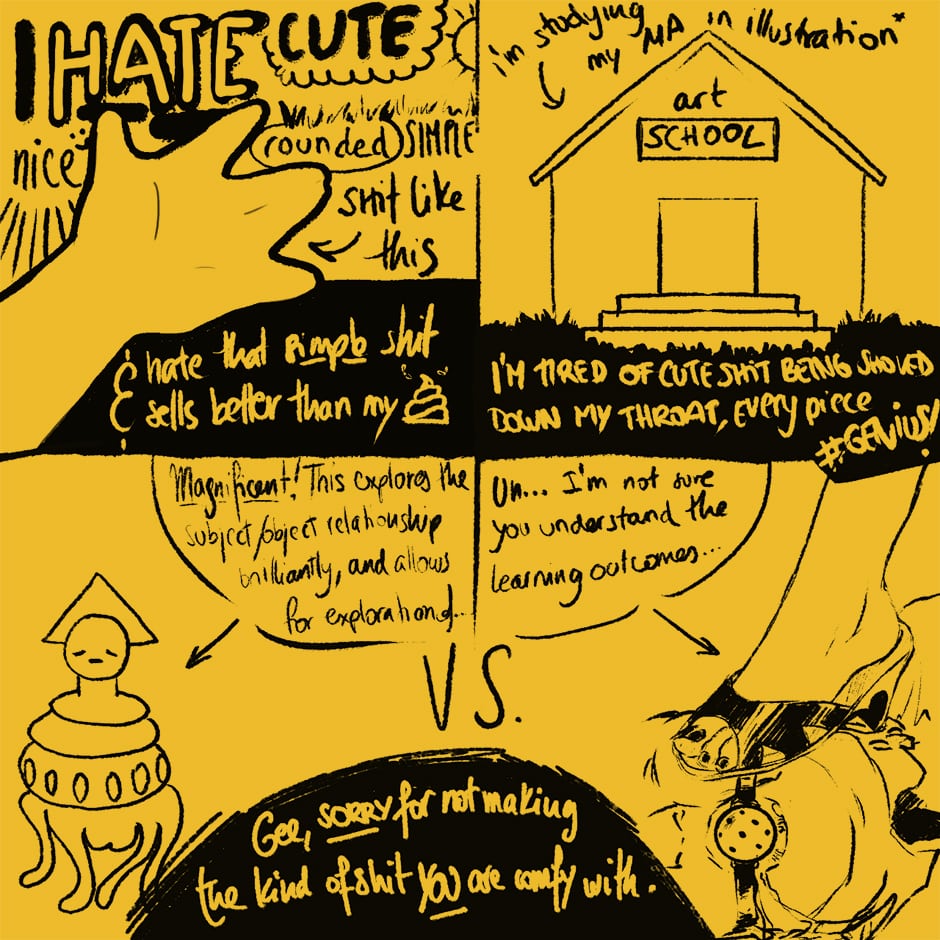 I HATE CUTE
nice
rounded SIMPLE
shit like
this
& hate that simple shit
& sells better than my
i'm studying
my MA in illustration*
art
SCHOOL
I'M TIRED OF CUTE SHIT BEING SHOVED
DOWN MY THROAT, EVERY piece
#GENIUS!
Magnificent! This explores the
subject/object relationship
brilliantly, and allows
for exploration of...
Uh... I'm not sure
you understand the
learning outcomes...
VS.
Gee, SORRY for not making
the kind of shit YOU are comfy with.